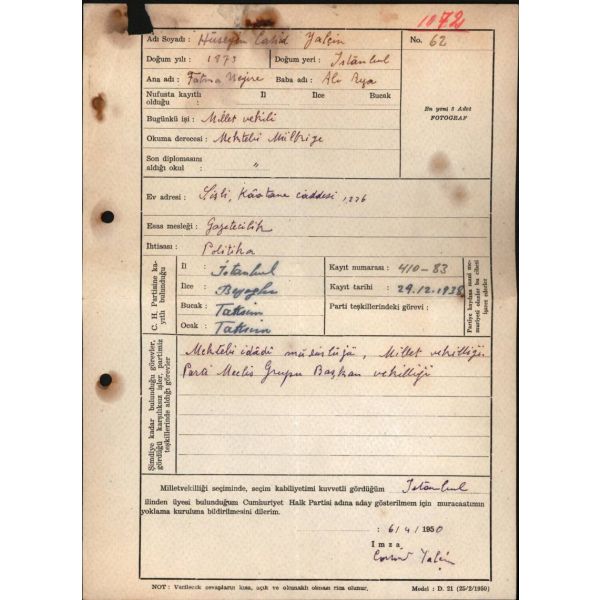 1072
Adı Soyadı : Hüseyin Cahid Yalçın
No. 62
Doğum yılı : 1873 Doğum yeri : İstanbul
Ana adı : Fatma Neyire Baba adı : Ali Rıza
Nufusta kayıtlı olduğu : İl İlce Bucak
En yeni 5 Adet
FOTOGRAF
Bugünkü işi : Millet vekili
Okuma derecesi : Mektebi Mülkiye
Son diplomasını
aldığı okul : "
Ev adresi : Şişli, Kâatane caddesi, 226
Esas mesleği : Gazetecilik
İhtisası : Politika
C. H. Partisine kayıtlı bulunduğu
İl : İstanbul
İlce : Beyoğlu
Bucak : Taksim
Ocak : Taksim
Kayıt numarası : 410-83
Kayıt tarihi : 29.12.1938
Parti teşkillerindeki görevi :
Partiye kaydına mani memuriyeti olanlar bu ciheti işaret ederler
Şimdiye kadar bulunduğu görevler, gördüğü karşılıksız işler, partimiz teşkillerinde aldığı görevler
Mektebi idâdî müdürlüğü, Millet vekilliği
Parti Meclis Grupu Başkan vekilliği
Milletvekilliği seçiminde, seçim kabiliyetimi kuvvetli gördüğüm İstanbul
ilinden üyesi bulunduğum Cumhuriyet Halk Partisi adına aday gösterilmem için muracaatımın
yoklama kuruluna bildirilmesini dilerim.
: 6/4/1950
İmza
Cahid Yalçın
NOT : Verilecek cevapların kısa, açık ve okunaklı olması rica olunur.
Model : D. 21 (25/2/1950)